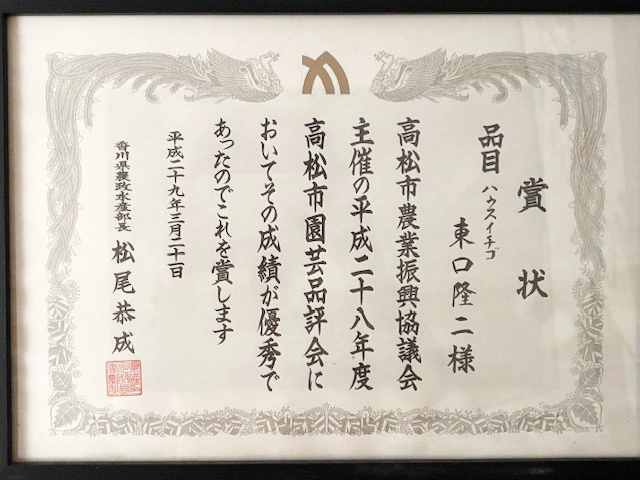 賞状
品目 ハウスイチゴ
東口隆二様
高松市農業振興協議会
主催の平成二十八年度
高松市園芸品評会に
おいてその成績が優秀で
あったのでこれを賞します
平成二十九年三月二十一日
香川県農政水産部長 松尾恭成